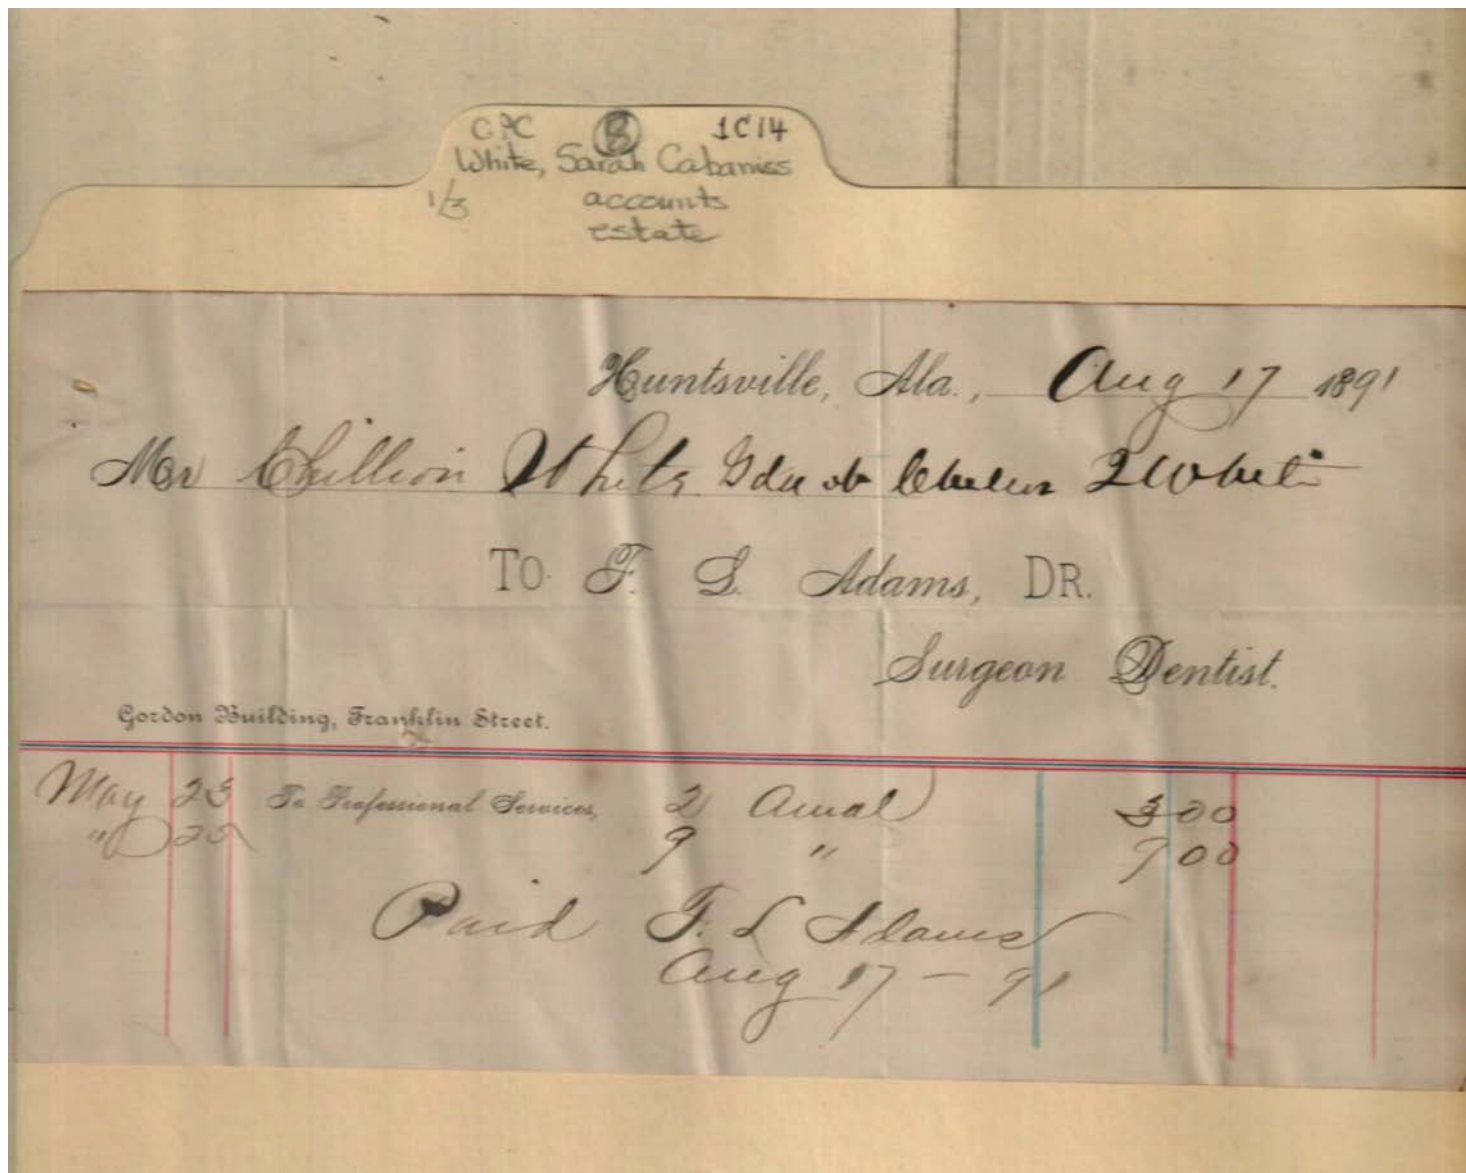 CPC B 1C14
White, Sarah Cabaniss
1/3 accounts
estate
Huntsville, Ala., Aug 17 1891
Mr Chillion White Gdn of White
TO F. L. Adams, DR.
Surgeon Dentist.
Gordon Building, Franklin Street.
May 23 To Professional Services, 2 Amal 3 00
" 25 9 " 9 00
Paid F. L Adams
Aug 17 - 91